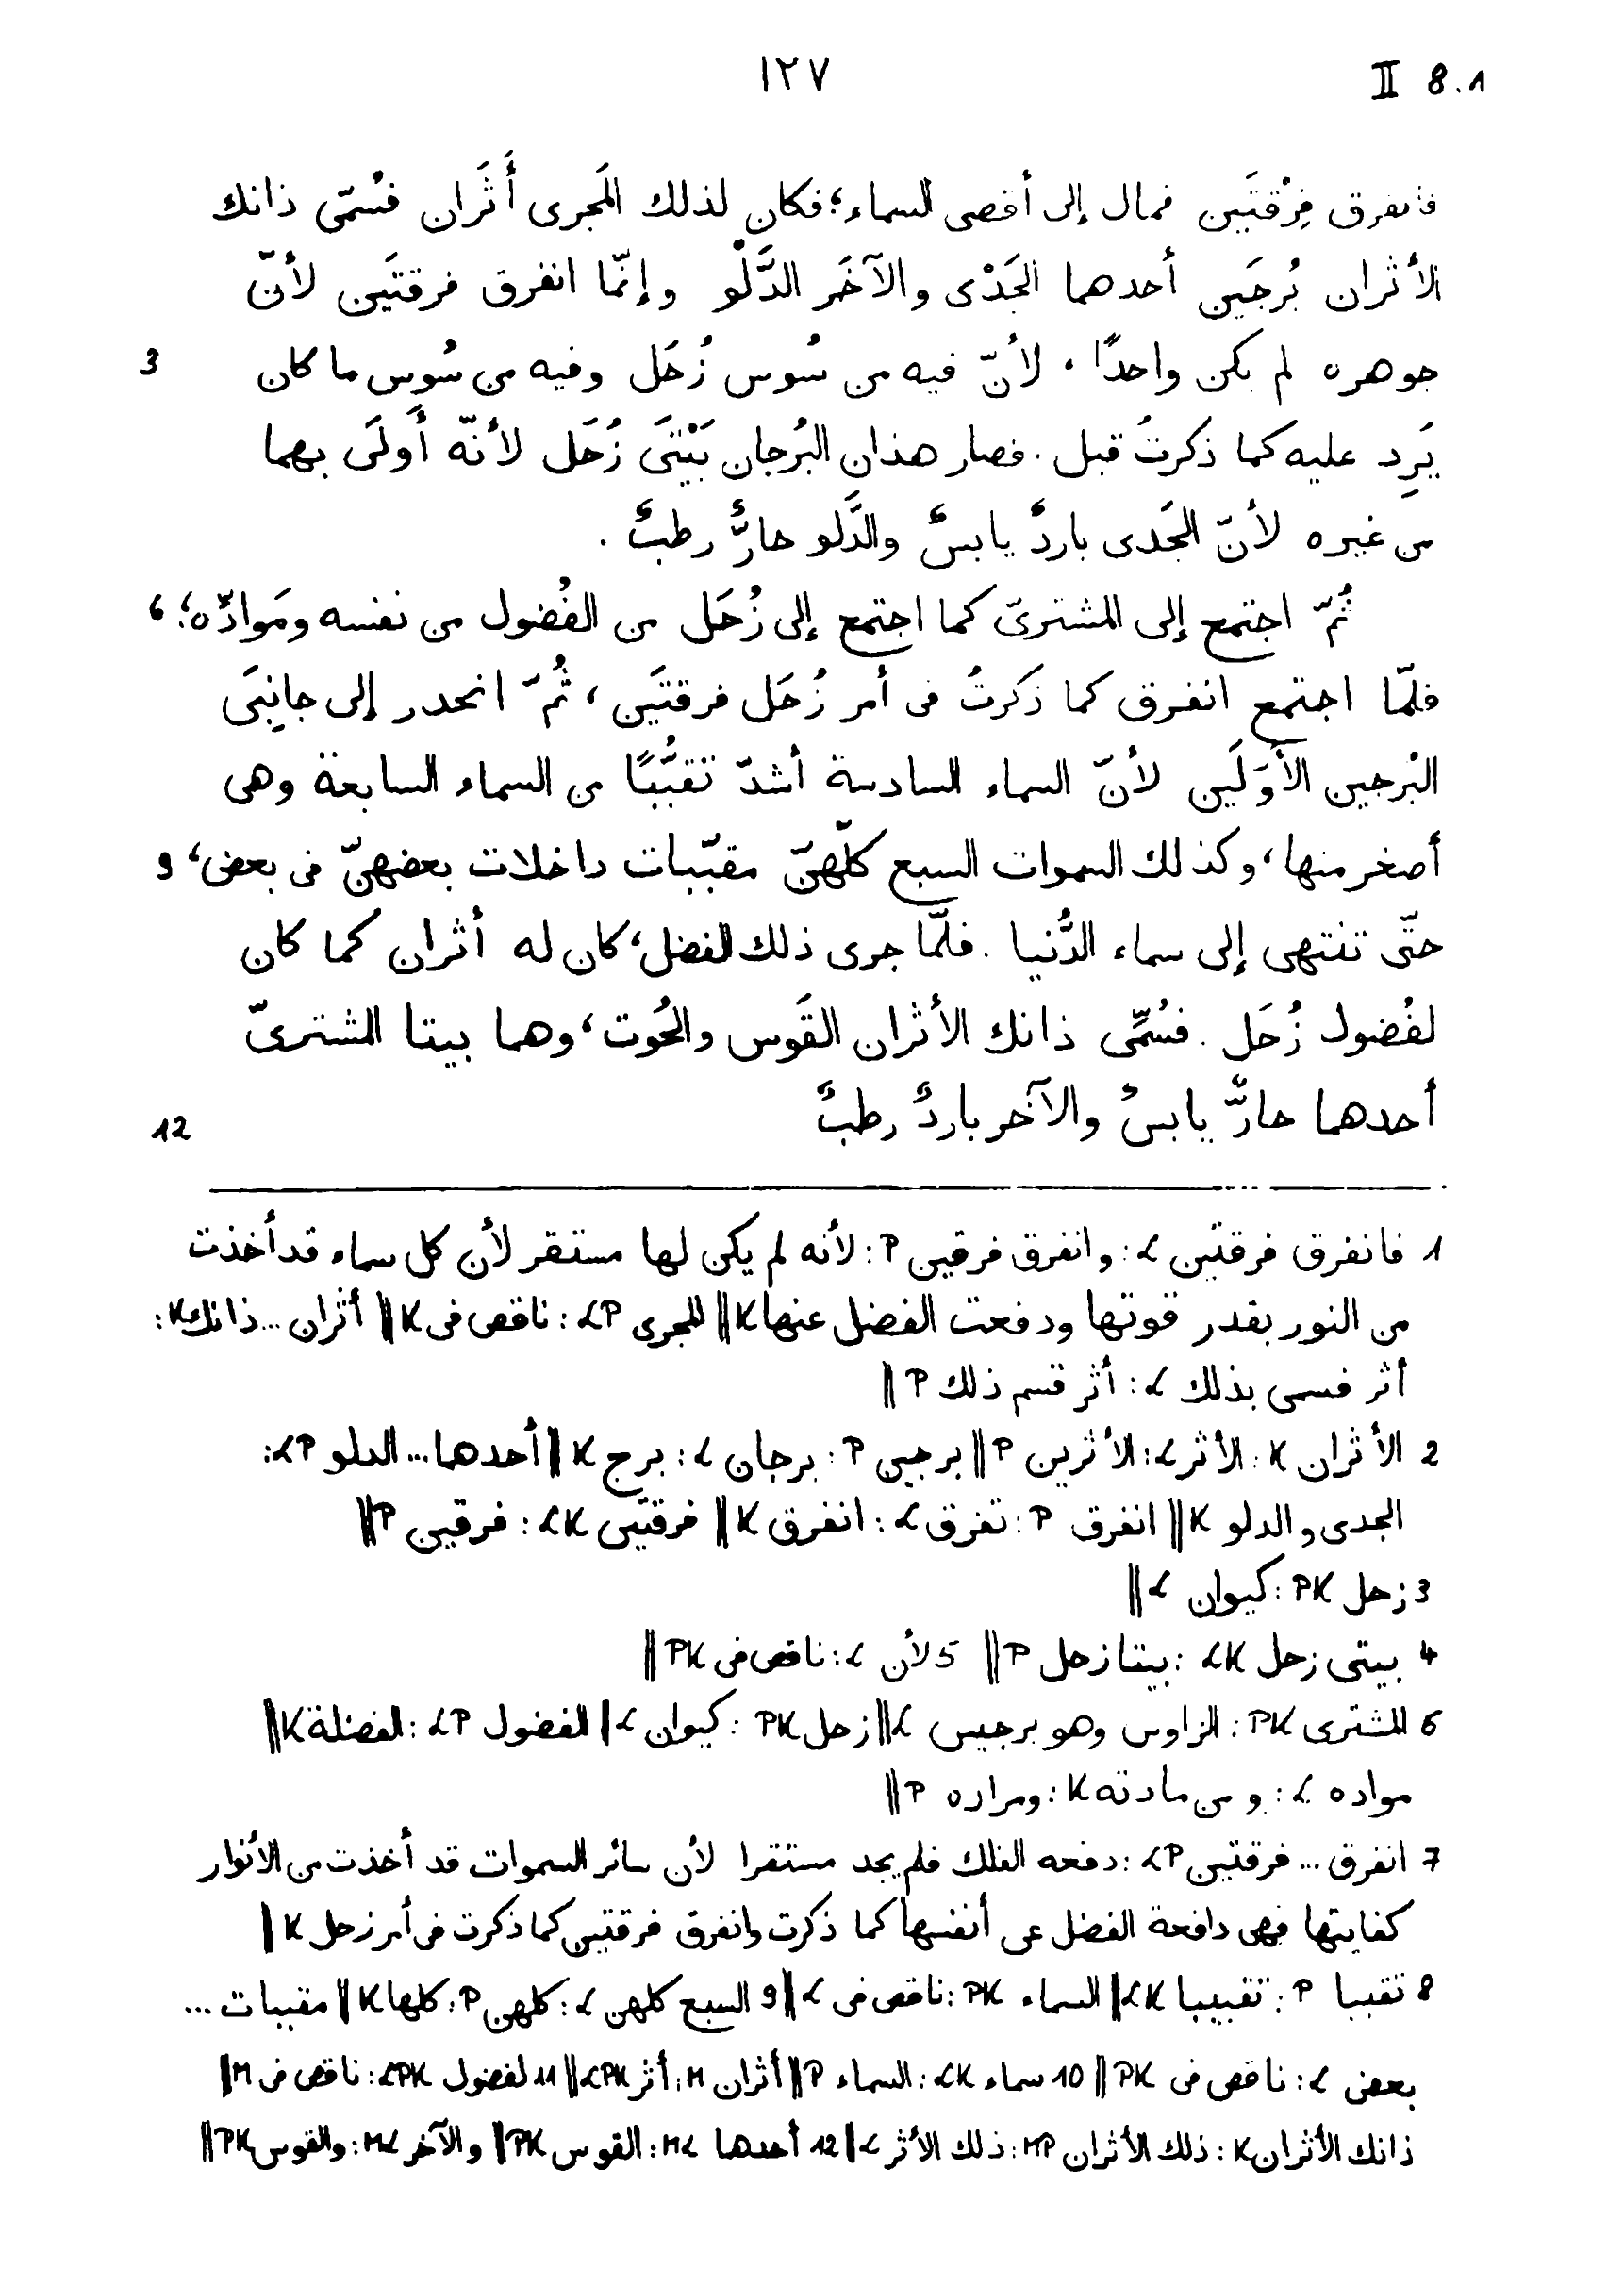 ١٢٧ II 8.1
فانفرق فِرْقتَين فمال إلى أقصى السماء؛ فكان لذلك المَجرى أَثَران فسُمّى ذانك
الأثران بُرجَين أحدهما الجَدْى والآخَر الدَّلْو وإنّما انفرق فرقتَين لأنّ
جوهره لم يكن واحدًا، لأنّ فيه من سُوس زُحَل وفيه من سُوس ما كان 3
يَرِد عليه كما ذكرتُ قبل. فصار هذان البُرجان بَيْتَى زُحَل لأنّه أَولَى بهما
من غيره لأنّ الجَدى باردٌ يابسٌ والدَّلو حارٌّ رطبٌ.
ثُمّ اجتمع إلى المشترىّ كما اجتمع إلى زُحَل من الفُضول من نفسه ومَوادّه؛ ٦
فلمّا اجتمع انفرق كما ذكرتُ فى أمر زُحَل فرقتَين، ثُمّ انحدر إلى جانِبَى
البُرجين الأوّلَين لأنّ السماء السادسة أشدّ تقبُّبًا من السماء السابعة وهى
أصغر منها، وكذلك السموات السبع كلّهنّ مقبّبات داخلات بعضهنّ فى بعض، 9
حتّى تنتهى إلى سماء الدُّنيا. فلمّا جرى ذلك الفضل، كان له أثران كما كان
لفُضول زُحَل. فسُمِّى ذانك الأثران القَوس والحُوت، وهما بيتا المشترىّ
أحدهما حارٌّ يابسٌ والآخر باردٌ رطبٌ 12
1 فانفرق فرقتين L: وانفرق فرقين P: لأنه لم يكن لها مستقر لأن كل سماء قد أخذت
من النور بقدر قوتها ودفعت الفضل عنها K || للمجرى LP: ناقص فى K || أثران ... ذانك K:
أثر فسمى بذلك L: أثر قسم ذلك P ||
2 الأثران K: الأثر L: الأثرين P || برجين P: برجان L: برج K || أحدهما ... الدلو LP:
الجدى والدلو K || انفرق P: تفرق L: انفرق K || فرقتين LK: فرقين P ||
3 زحل PK: كيوان L ||
4 بيتى زحل LK: بيتا زحل P || 5 لأن L: ناقص فى PK ||
6 المشترى PK: الزاوس وهو برجيس L || زحل PK: كيوان L || الفضول LP: الفضلة K ||
مواده L: ومن مادته K: ومراره P ||
7 انفرق ... فرقتين LP: دفعه الفلك فلم يجد مستقرا لأن سائر السموات قد أخذت من الأنوار
كفايتها فهى دافعة الفضل عن أنفسها كما ذكرت وانفرق فرقتين كما ذكرت فى أمر زحل K ||
8 تقببا P: تقبيبا LK || السماء PK: ناقص فى L || 9 السبع كلهن L: كلهن P: كلها K || مقببات ...
بعض L: ناقص فى PK || 10 سماء LK: السماء P || أثران M: أثر LPK || 11 لفضول LPK: ناقص فى M ||
ذانك الأثران K: ذلك الأثران MP: ذلك الأثر L || 12 أحدهما ML: القوس PK || والآخر ML: والقوس PK ||